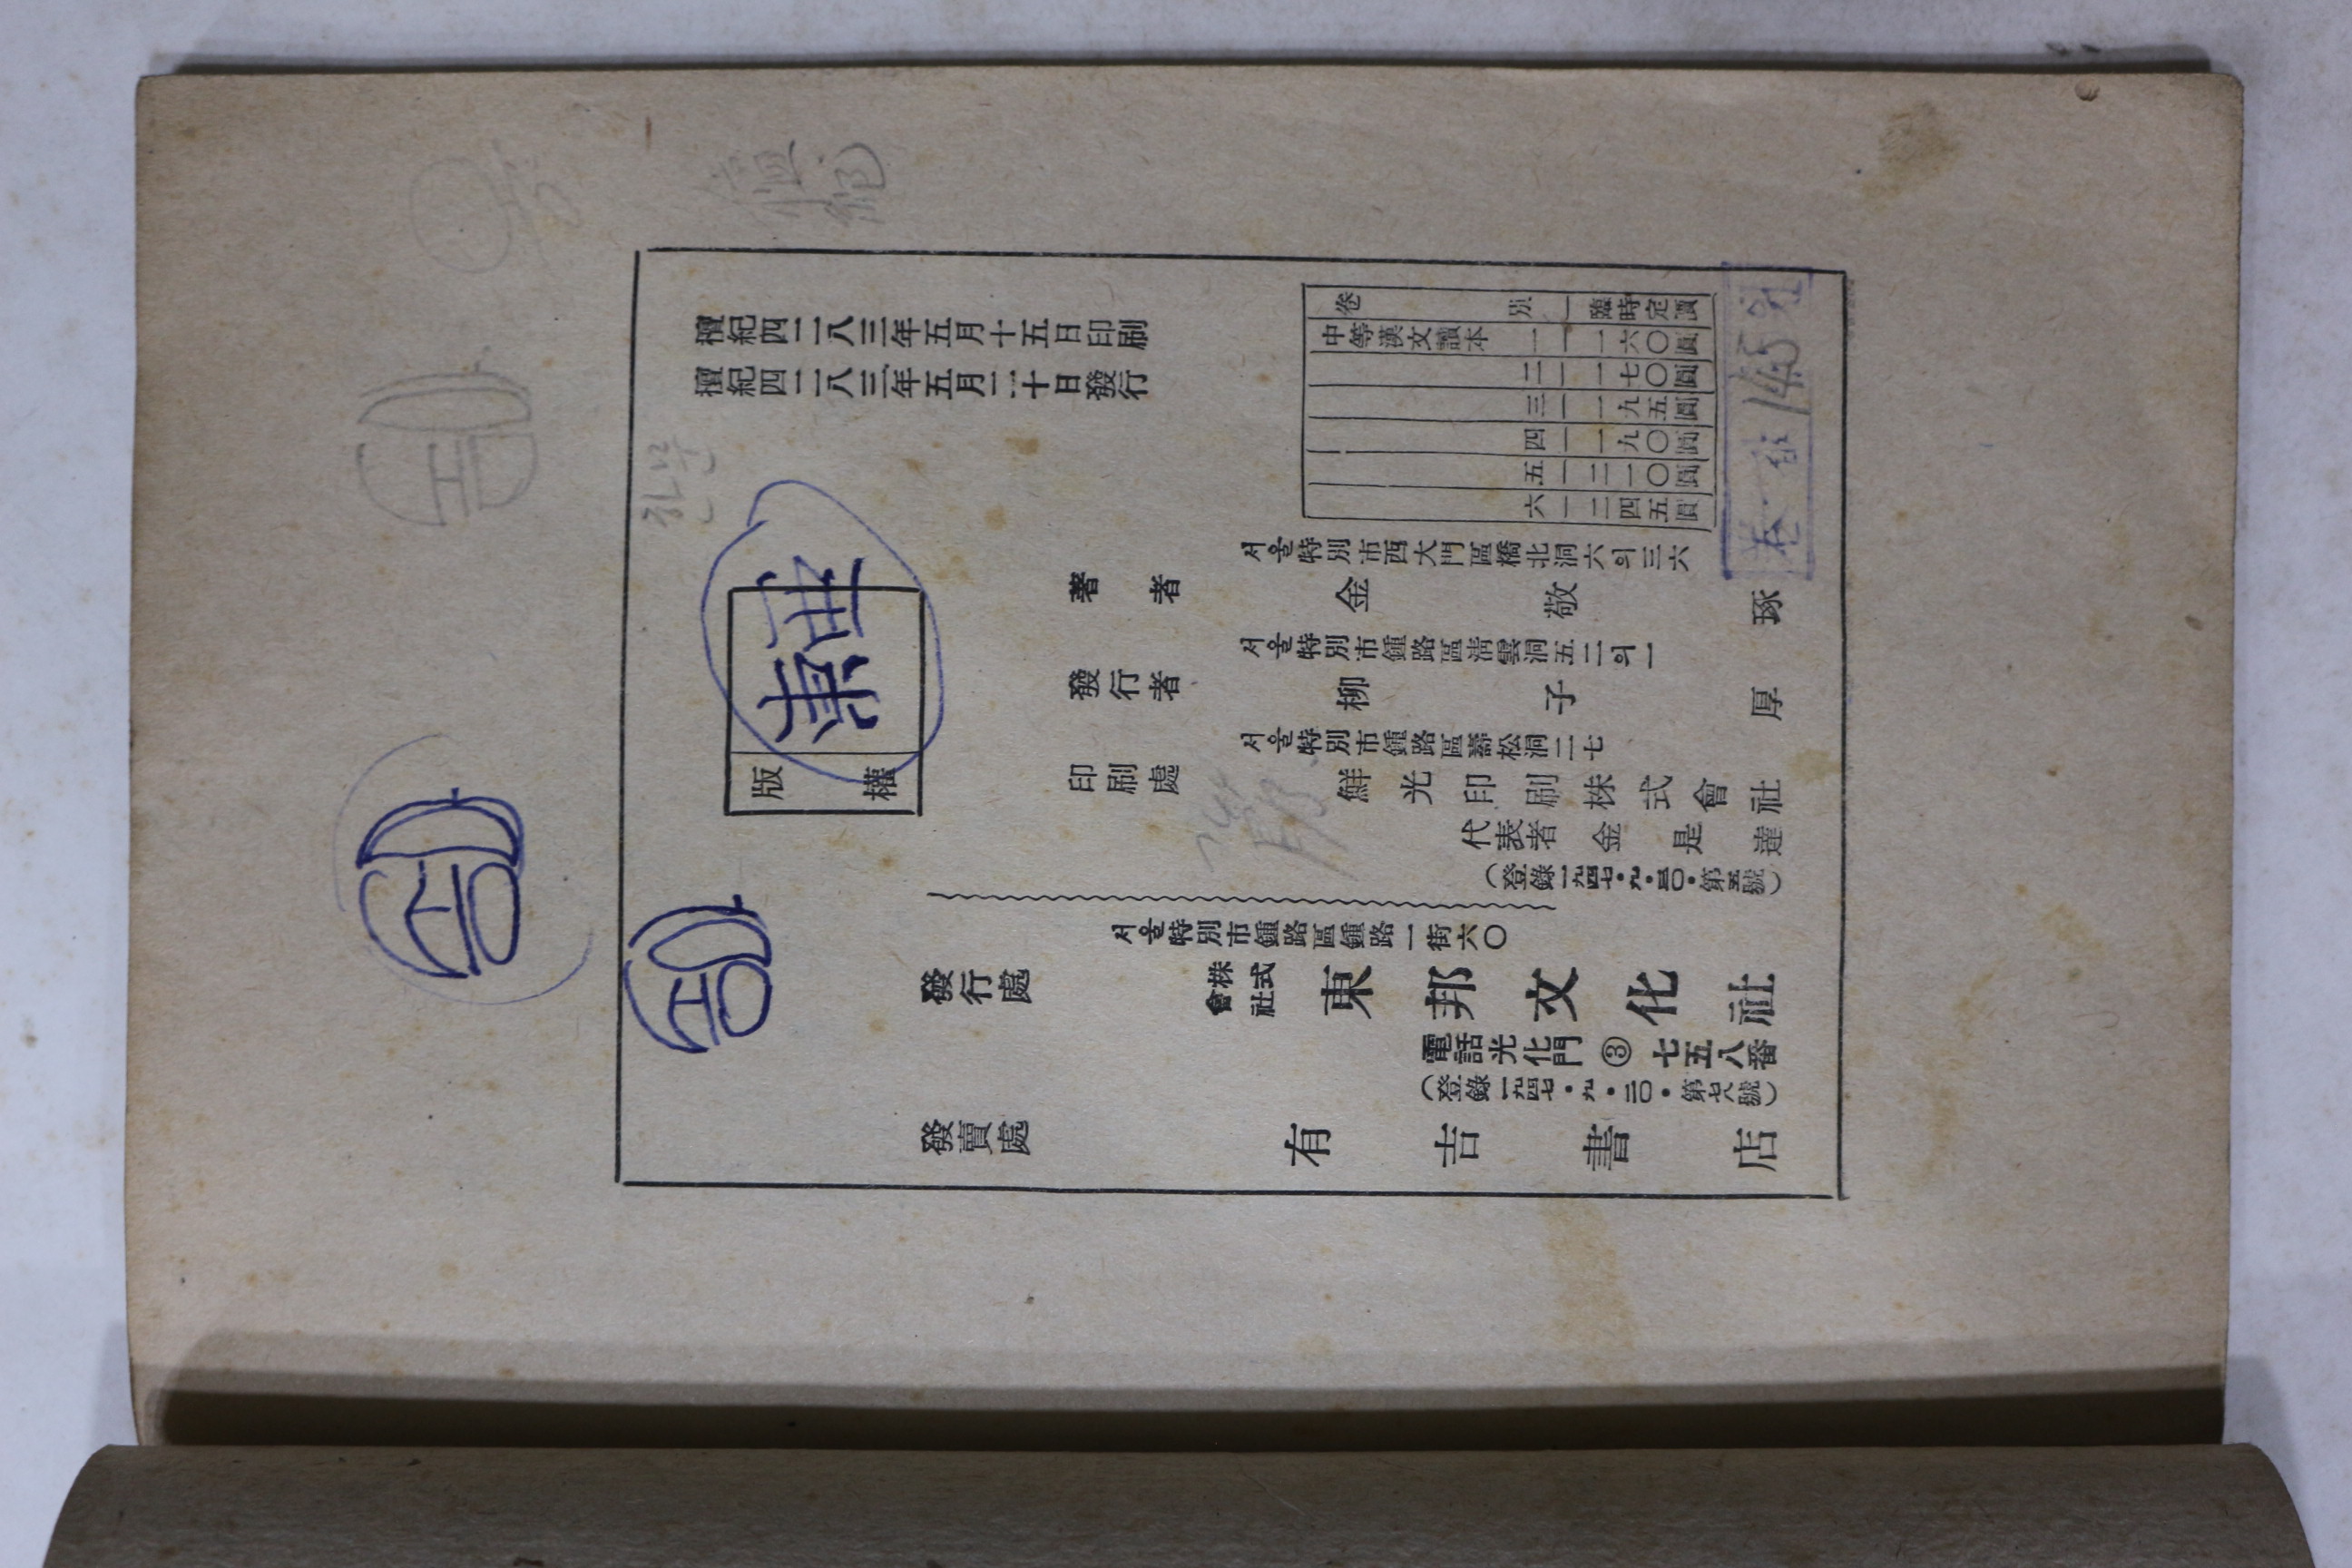 檀紀四二八三年五月十五日印刷
檀紀四二八三年五月二十日發行
卷別 臨時定價
中等漢文讀本 一 一六〇圓
二 一七〇圓
三 一九五圓
四 一九〇圓
五 二一〇圓
六 二四五圓
한문
版權
서울特別市西大門區橋北洞六의三六
著者 金敬琢
서울特別市鍾路區淸雲洞五二의一
發行者 柳子厚
서울特別市鍾路區壽松洞二七
印刷處 鮮光印刷株式會社
代表者 金是達
(登錄一九四七・九・三〇・第五號)
서울特別市鍾路區鍾路一街六〇
發行處 株式會社 東邦文化社
電話光化門③七五八番
(登錄一九四七・九・三〇・第七八號)
發賣處 有吉書店